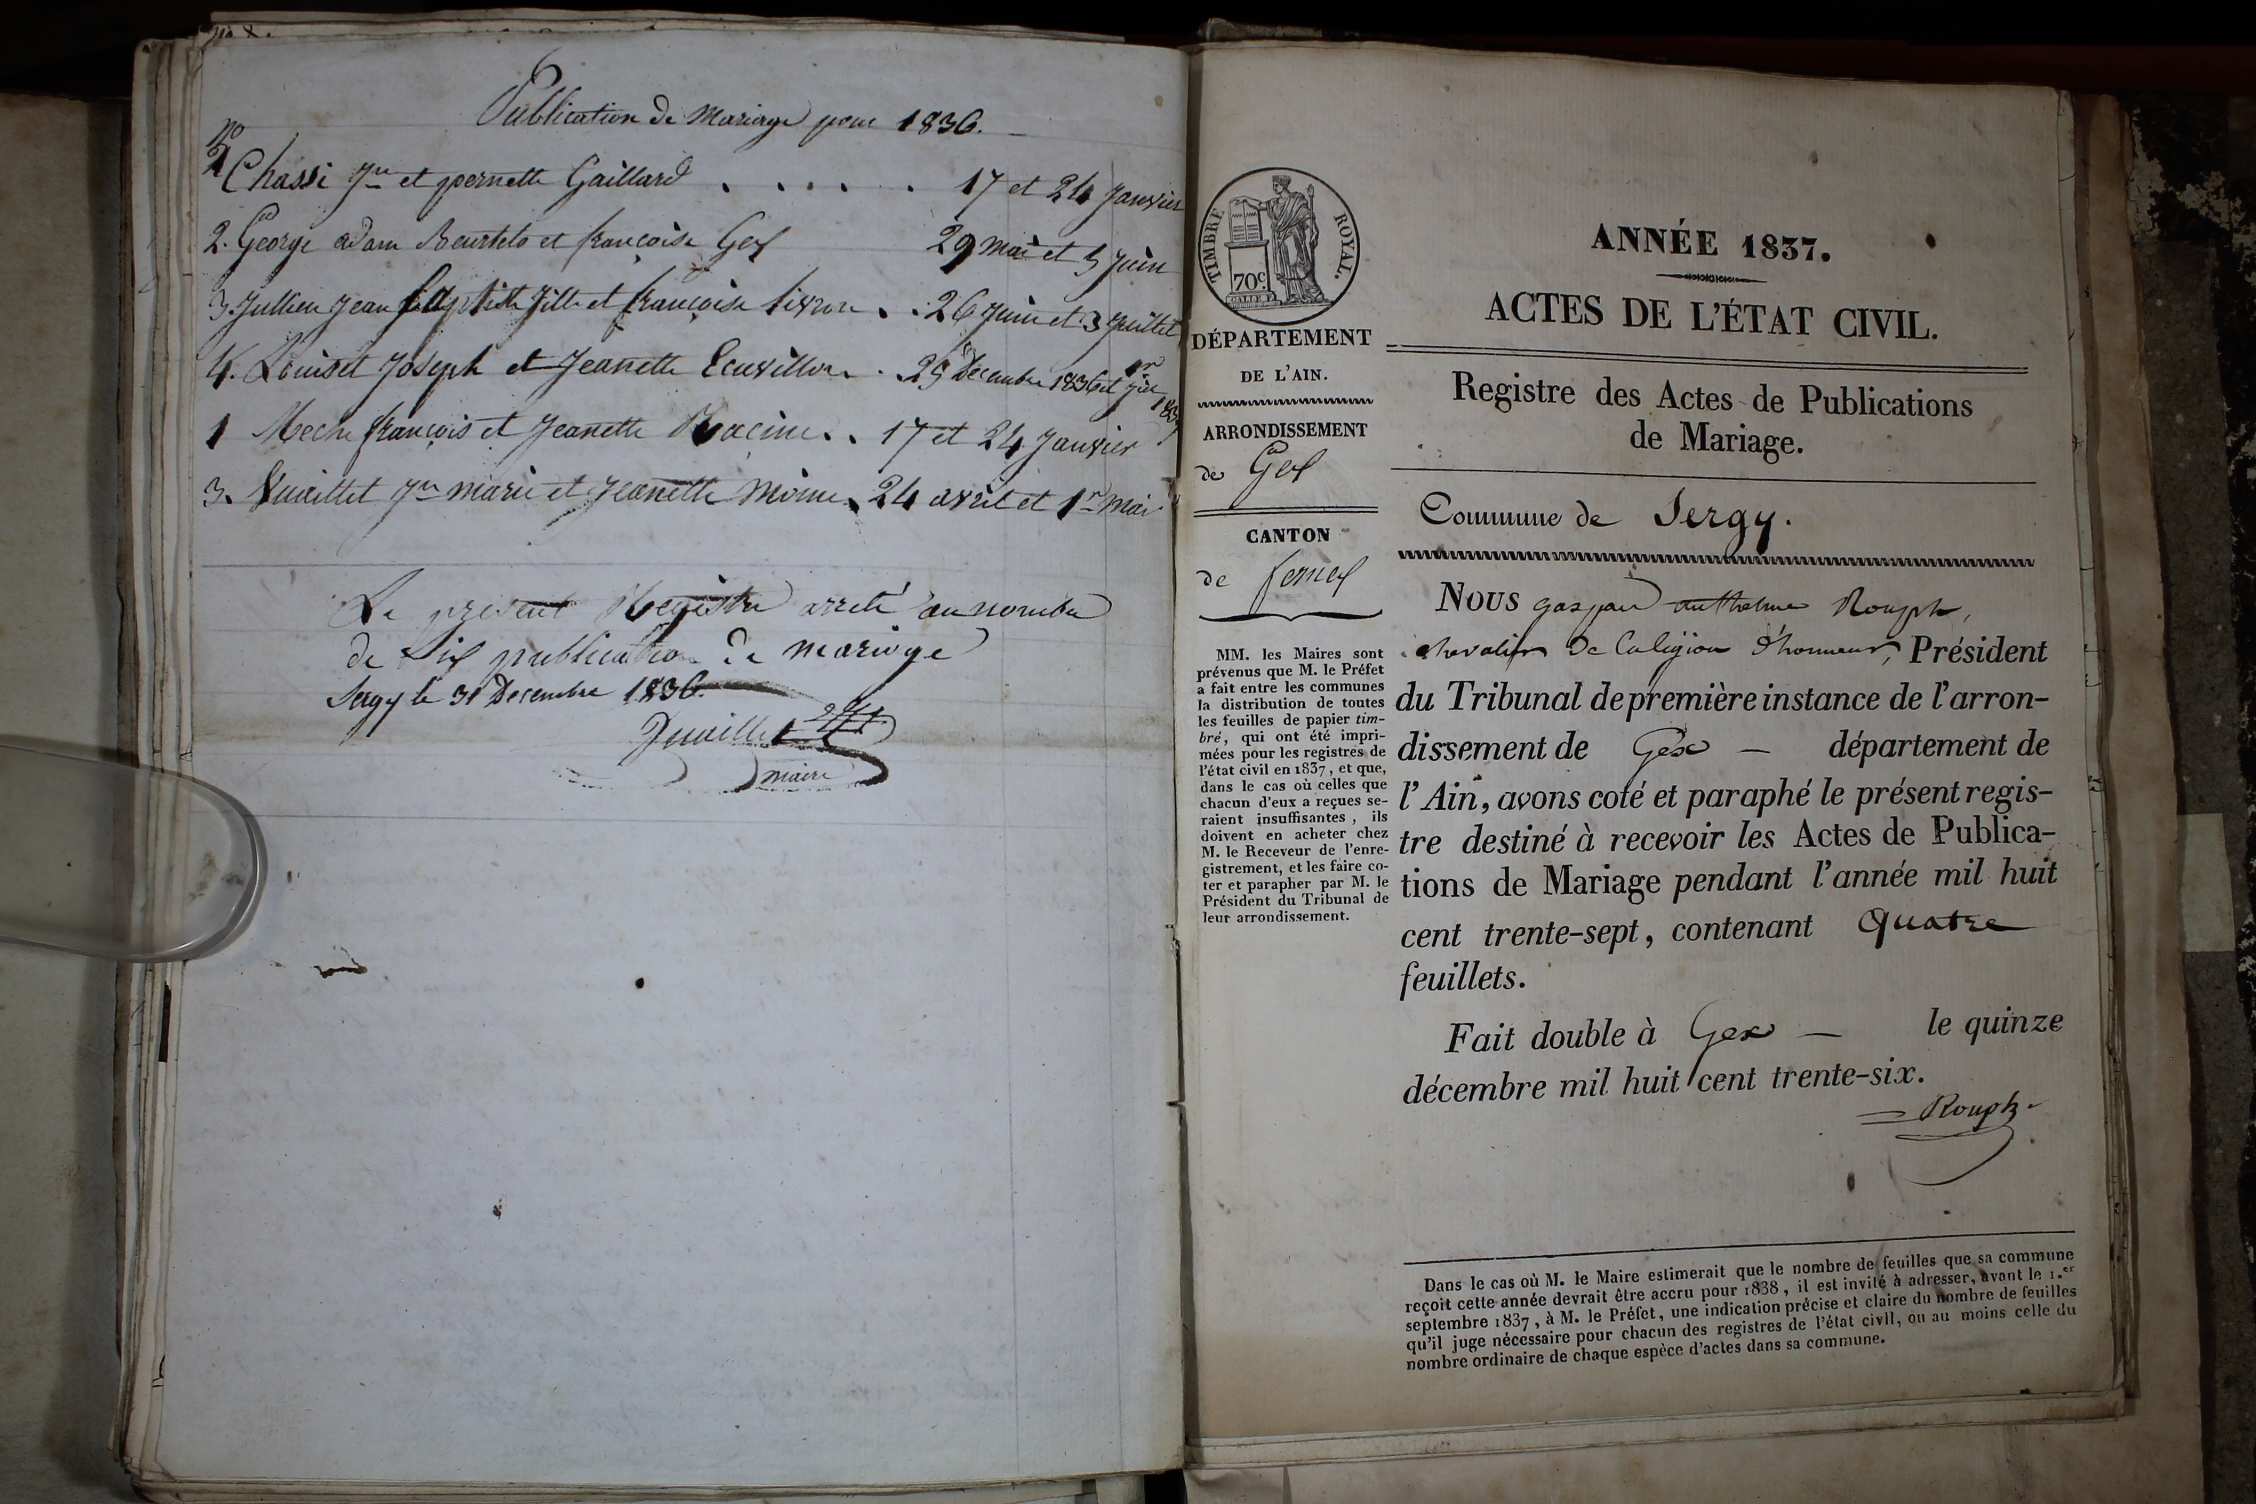 Publication de Mariage pour 1836.
No
1 Chassi Jn et pernette Gaillard . . . . . 17 et 24 Janvier
2. George adam et françoise Gex 29 mai et 5 Juin
3. Jullien Jean Baptiste et françoise Livron . . 26 Juin et 3 Juillet
4. Louiset Joseph et Jeanette Ecuvillon . 25 Decembre 1836 et 1er
1 françois et Jeanette Racine . . 17 et 24 Janvier
3. Vuaillet Jn marie et Jeanette Moine . 24 avril et 1er Mai
Le present Registre arreté au nombre
de Six publication de mariage
Sergy le 31 Decembre 1836.
maire
TIMBRE ROYAL.
70c.
DÉPARTEMENT
DE L'AIN.
ARRONDISSEMENT
de Gex
CANTON
de fernex
MM. les Maires sont
prévenus que M. le Préfet
a fait entre les communes
la distribution de toutes
les feuilles de papier tim-
bré, qui ont été impri-
mées pour les registres de
l'état civil en 1837, et que,
dans le cas où celles que
chacun d'eux a reçues se-
raient insuffisantes, ils
doivent en acheter chez
M. le Receveur de l'enre-
gistrement, et les faire co-
ter et parapher par M. le
Président du Tribunal de
leur arrondissement.
ANNÉE 1837.
ACTES DE L'ÉTAT CIVIL.
Registre des Actes de Publications
de Mariage.
Commune de Sergy.
Nous gaspard anthelme Rouph,
chevalier De la légion d'honneur, Président
du Tribunal de première instance de l'arron-
dissement de Gex — département de
l'Ain, avons coté et paraphé le présent regis-
tre destiné à recevoir les Actes de Publica-
tions de Mariage pendant l'année mil huit
cent trente-sept, contenant quatre
feuillets.
Fait double à Gex — le quinze
décembre mil huit cent trente-six.
Rouph
Dans le cas où M. le Maire estimerait que le nombre de feuilles que sa commune
reçoit cette année devrait être accru pour 1838, il est invité à adresser, avant le 1.er
septembre 1837, à M. le Préfet, une indication précise et claire du nombre de feuilles
qu'il juge nécessaire pour chacun des registres de l'état civil, ou au moins celle du
nombre ordinaire de chaque espèce d'actes dans sa commune.